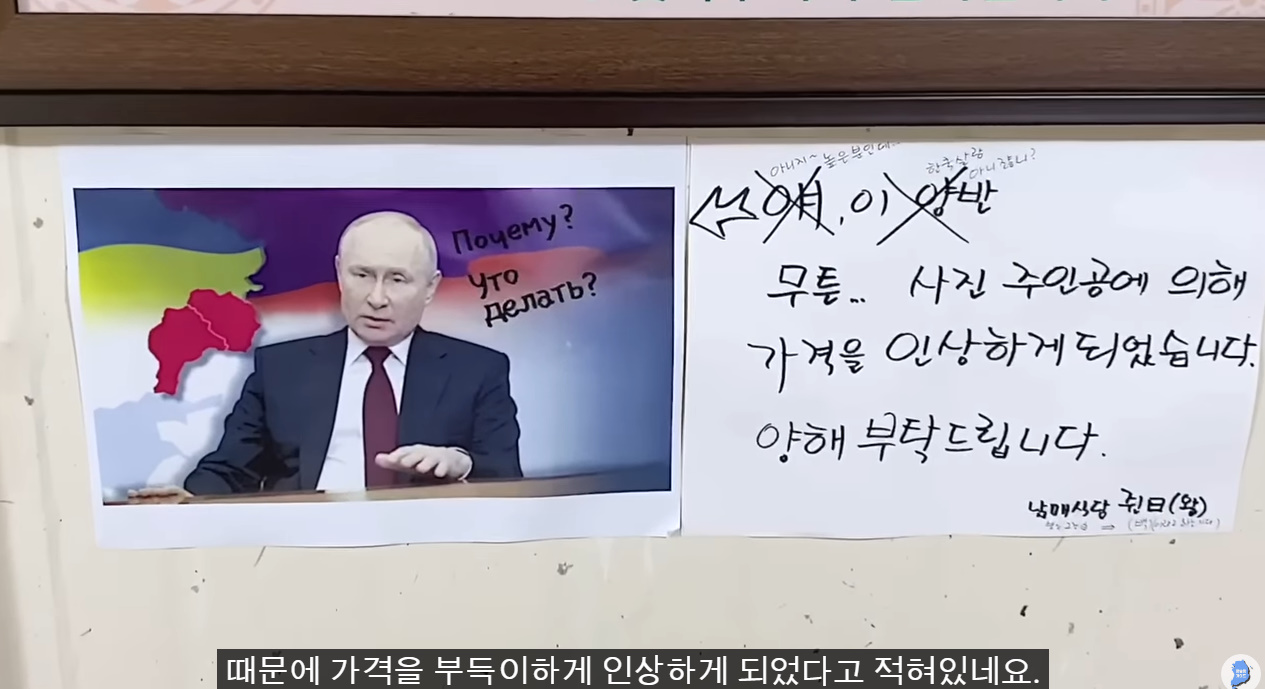 Почему?
Что
делать?
아니지~ 높은분인데...
한국사람
아니잖니?
, 이 양반
무튼... 사진 주인공에 의해
가격을 인상하게 되었습니다.
양해 부탁드립니다.
남매식당 쥔日(왕)
때문에 가격을 부득이하게 인상하게 되었다고 적혀있네요.